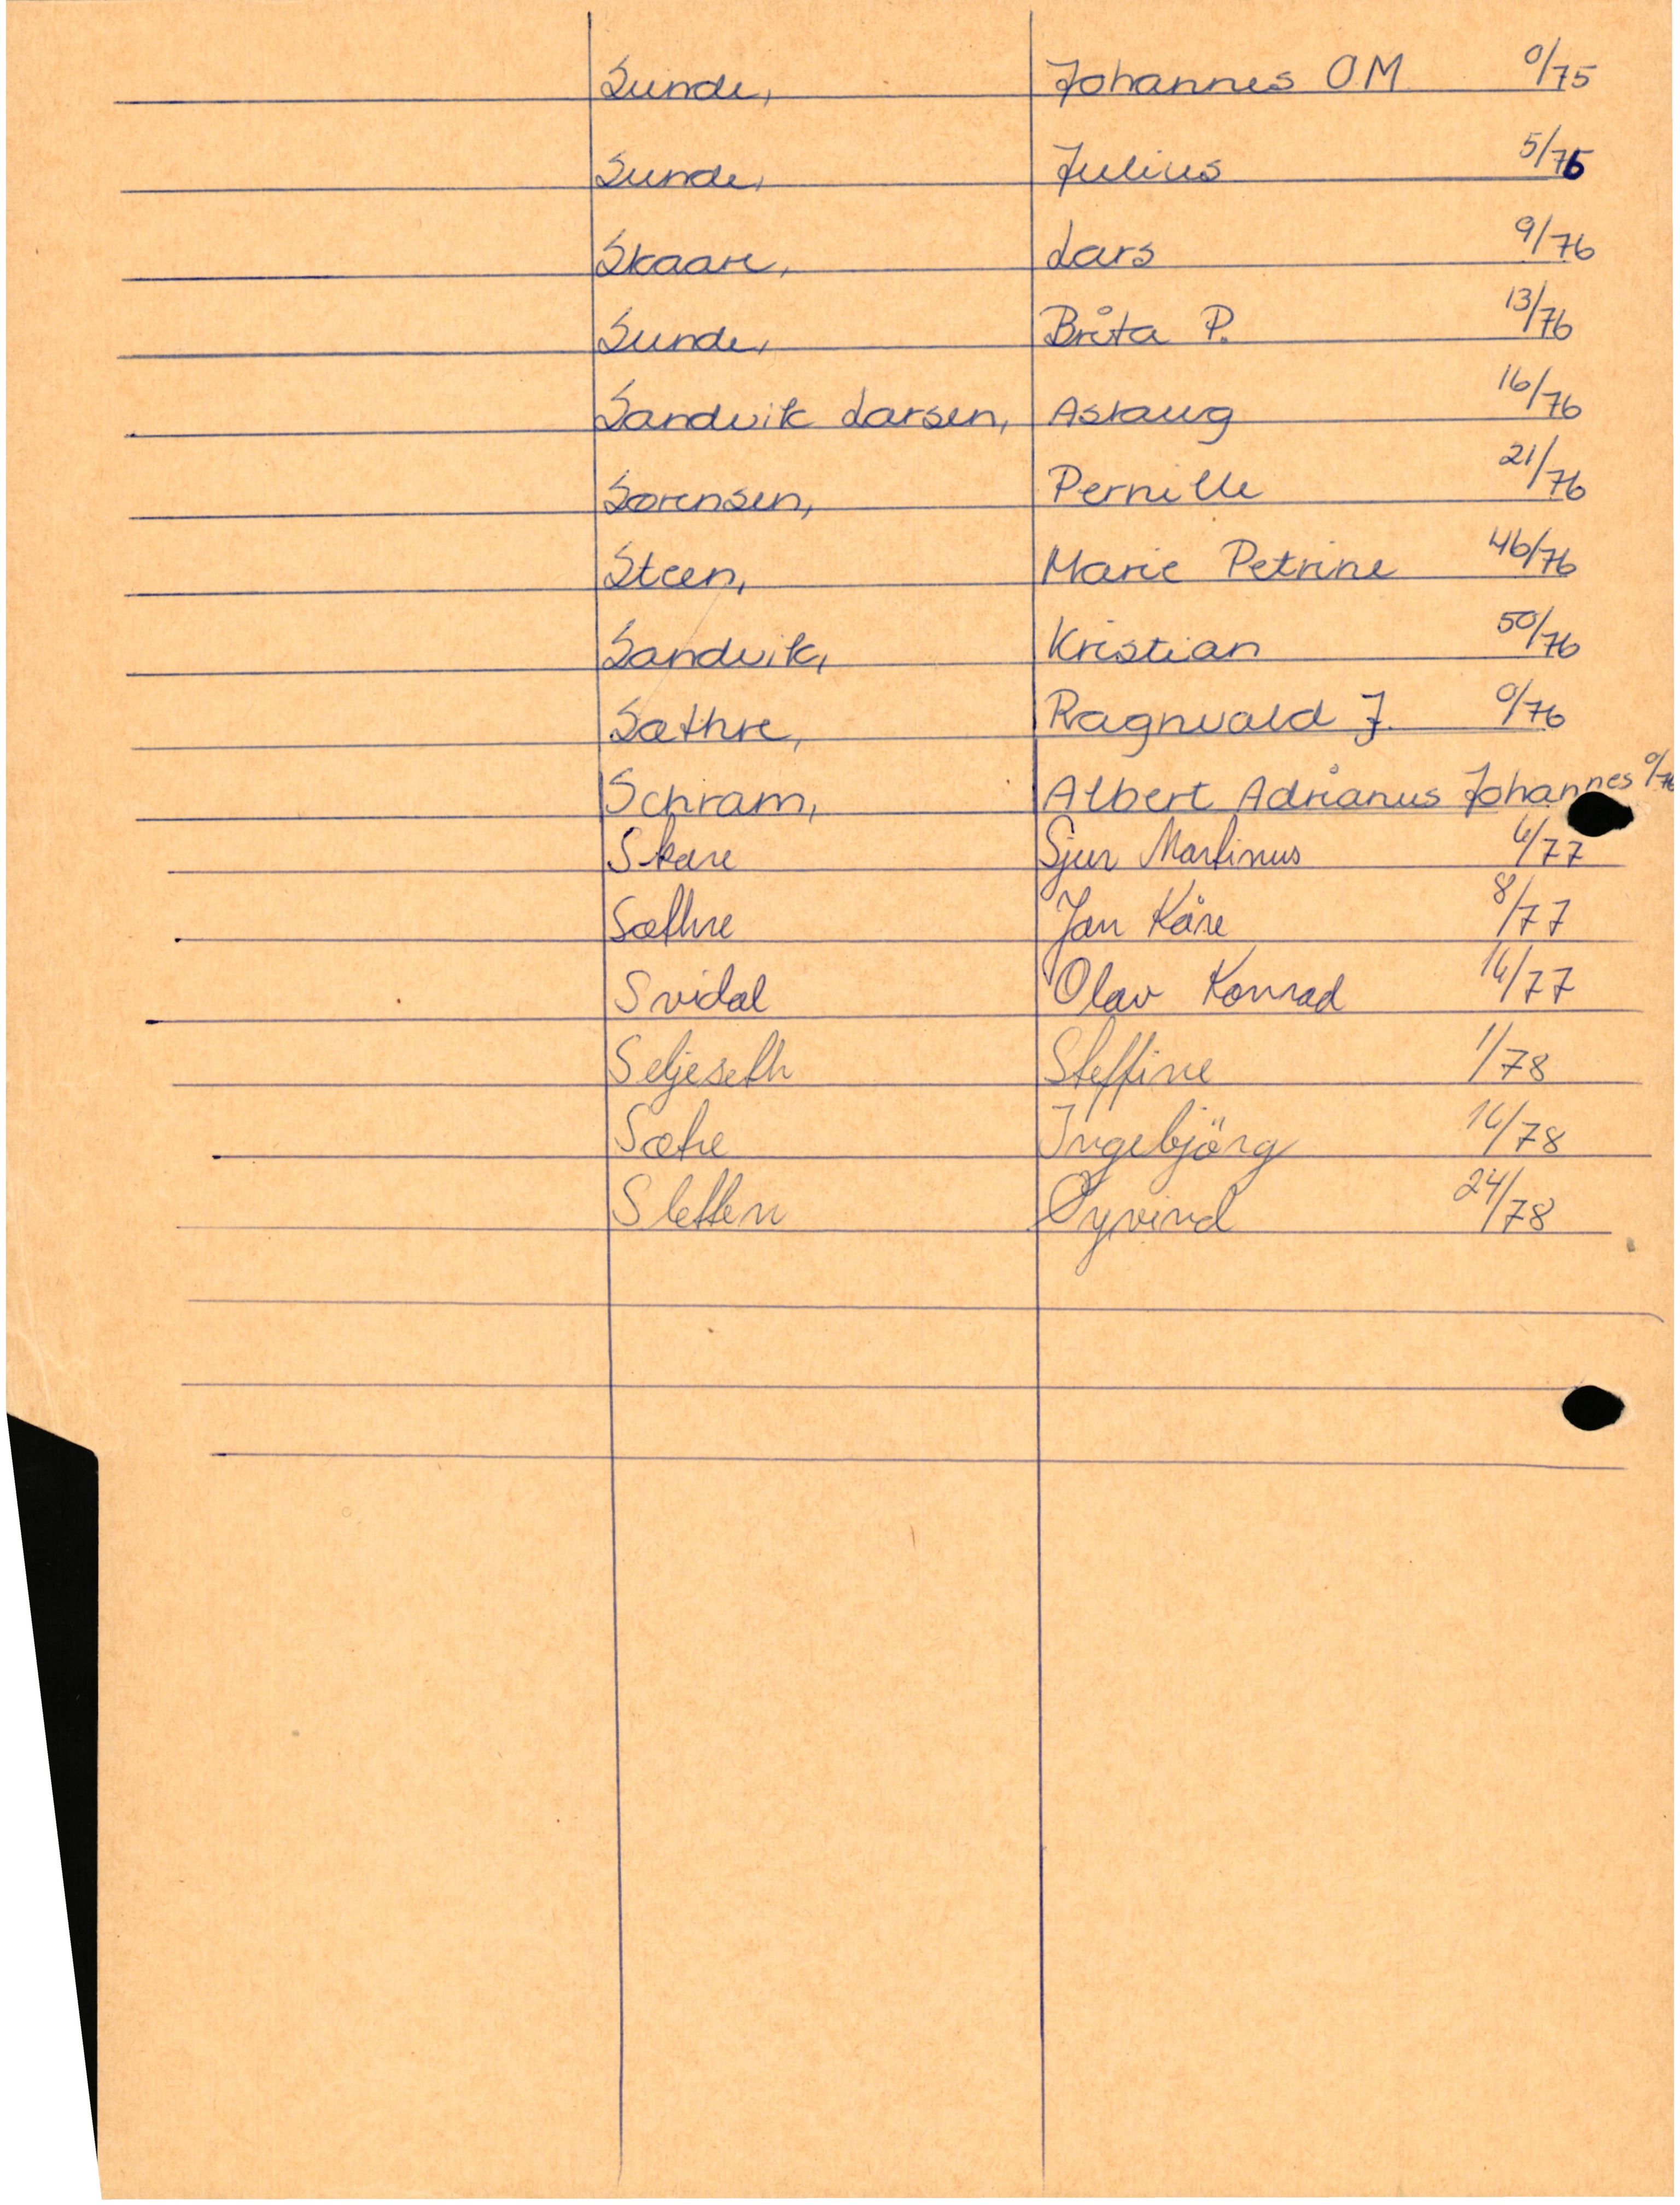 Sunde, Johannes O.M. 0/75
Sunde, Julius 5/76
Skaare, Lars 9/76
Sunde, Brita P. 13/76
Sandvik Larsen, Aslaug 16/76
Sørensen, Pernille 21/76
Steen, Marie Petrine 46/76
Sandvik, Kristian 50/76
Sæthre, Ragnvald J. 0/76
Schram, Albert Adrianus Johannes 0/76
Skare Sjur Martinus 6/77
Sæthre Jan Kåre 8/77
Svidal Olav Konrad 16/77
Seljeseth Steffine 1/78
Sætre Ingebjörg 16/78
Sletten Øyvind 24/78